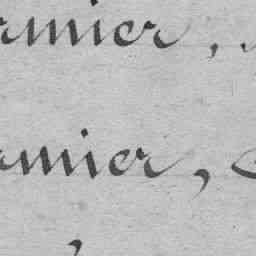 rmier,
rmier,
,